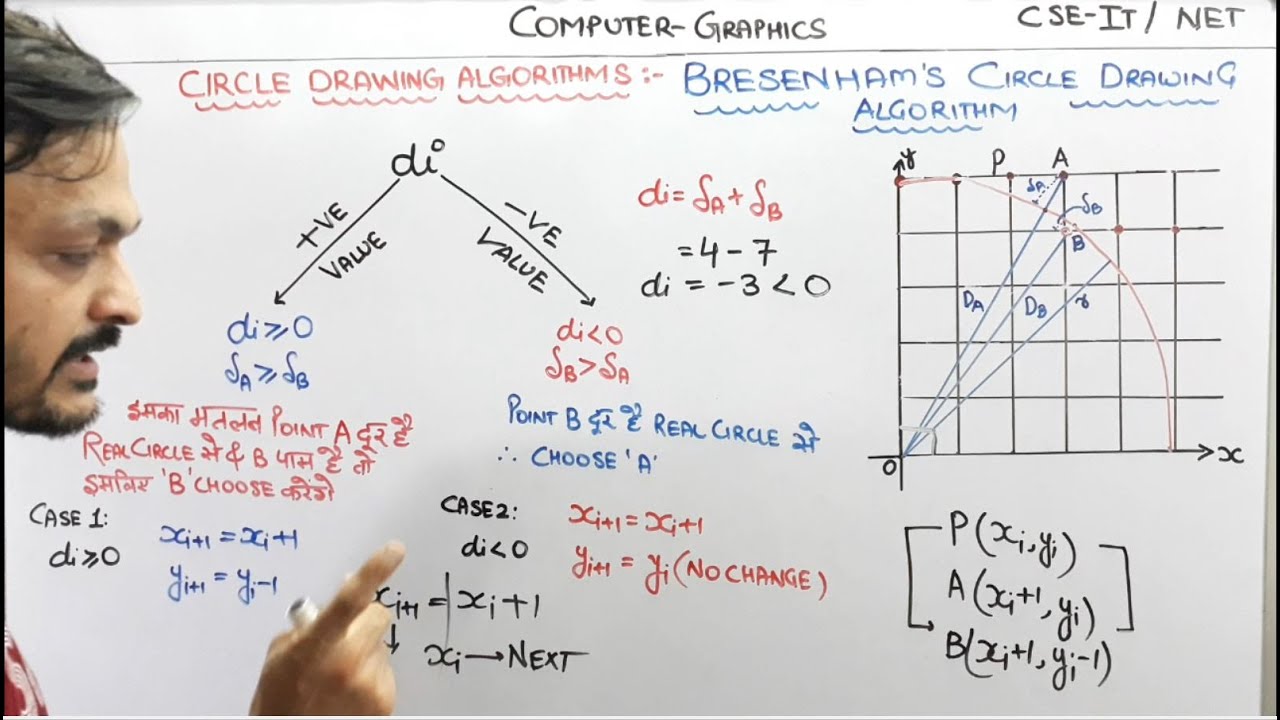 COMPUTER-GRAPHICS
CSE-IT / NET
CIRCLE DRAWING ALGORITHMS:- BRESENHAM'S CIRCLE DRAWING
ALGORITHM
di
+VE
VALUE
-VE
VALUE
di≥0
δA≥δB
di<0
δB>δA
इसका मतलब POINT A दूर है
REAL CIRCLE से & B पास है तो
इसलिए 'B' CHOOSE करेंगे
POINT B दूर है REAL CIRCLE से
∴ CHOOSE 'A'
di = δA + δB
= 4 - 7
di = -3 < 0
CASE 1:
di≥0
xi+1 = xi+1
yi+1 = yi-1
CASE 2:
di<0
xi+1 = xi+1
yi+1 = yi (NO CHANGE)
xi+1 = xi+1
↓
xi → NEXT
Y
P
A
δA
δB
B
DA
DB
r
O
x
P(xi, yi)
A(xi+1, yi)
B(xi+1, yi-1)